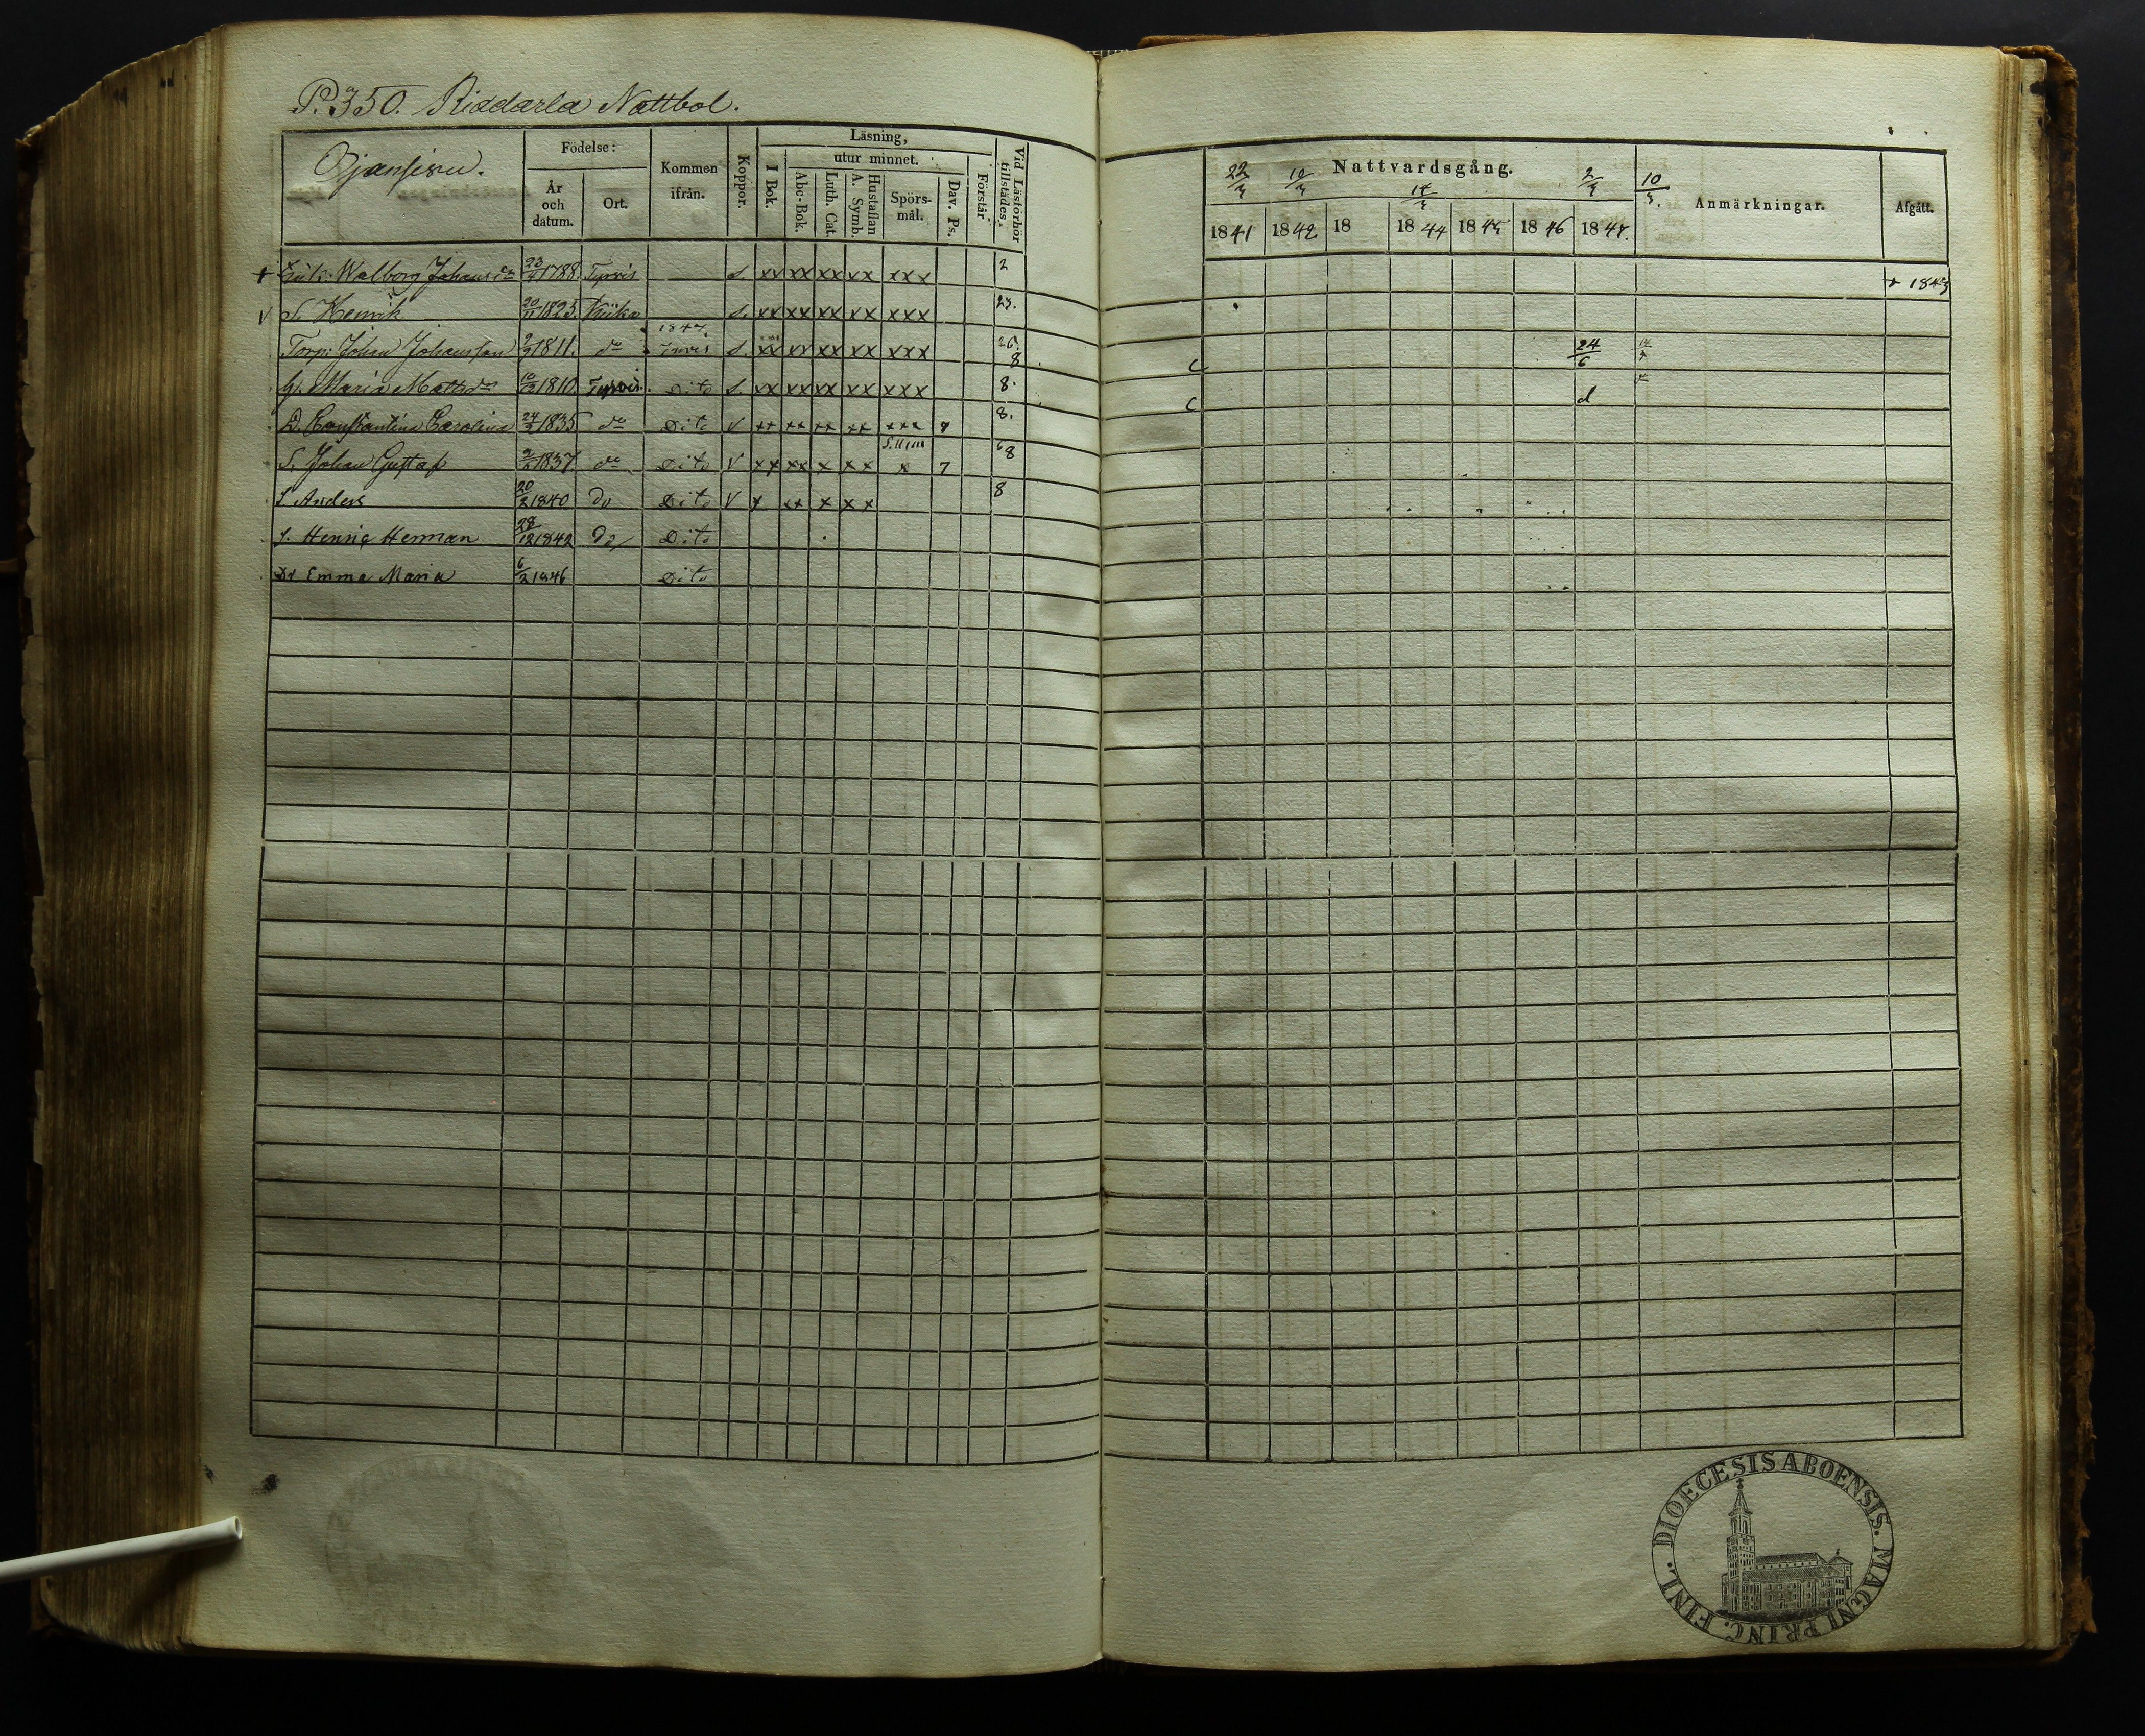 P. 350. Riddarla Nattbol.
Ojansisu.
Födelse:
År och datum.
Ort.
Kommen ifrån.
Koppor.
Läsning,
I Bok.
utur minnet.
Abc-Bok.
Luth. Cat.
Hustaflan A. Symb.
Spörsmål.
Dav. Ps.
Förstår
Vid Läsförhör tillstädes.
Nattvardsgång.
Anmärkningar.
Afgått.
22/3 10/3 2/3 10/3.
1841 1842 18 1844 1845 1846 1847.
+ Walborg Johansdr 23/4 1788 Tyrvis S. xx xx xx xx xxx 2 + 1843
V S. Henrik 20/11 1823. Kiika S. xx xx xx xx xxx 23.
1847.
Torp: Johan Johansson 1811. do Tyrvis S. xx xx xx xx xxx 26. 8 C 24/6
H. Maria Mattsdr 10/12 1810. Tyrvis. Dito S. xx xx xx xx xxx 8. C d
D. Constantina Carolina 24/2 1835 do Dito V xx xx xx xx xxx 7 8.
S. Johan Gustaf 1837 do Dito V xx xx x xx x 7 8
S. Anders 20/2 1840 Do Dito V x xx x xx 8
S. Henric Herman 28/12 1842 Do Dito
Dr Emma Maria 6/2 1846 Dito
DIOECESIS ABOENSIS. MAGNI PRINC. FINL.